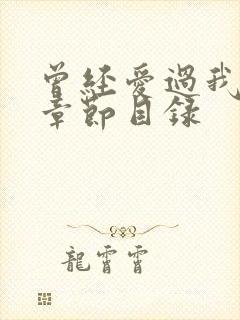 曾經愛過我
章節目錄
龍霄霄